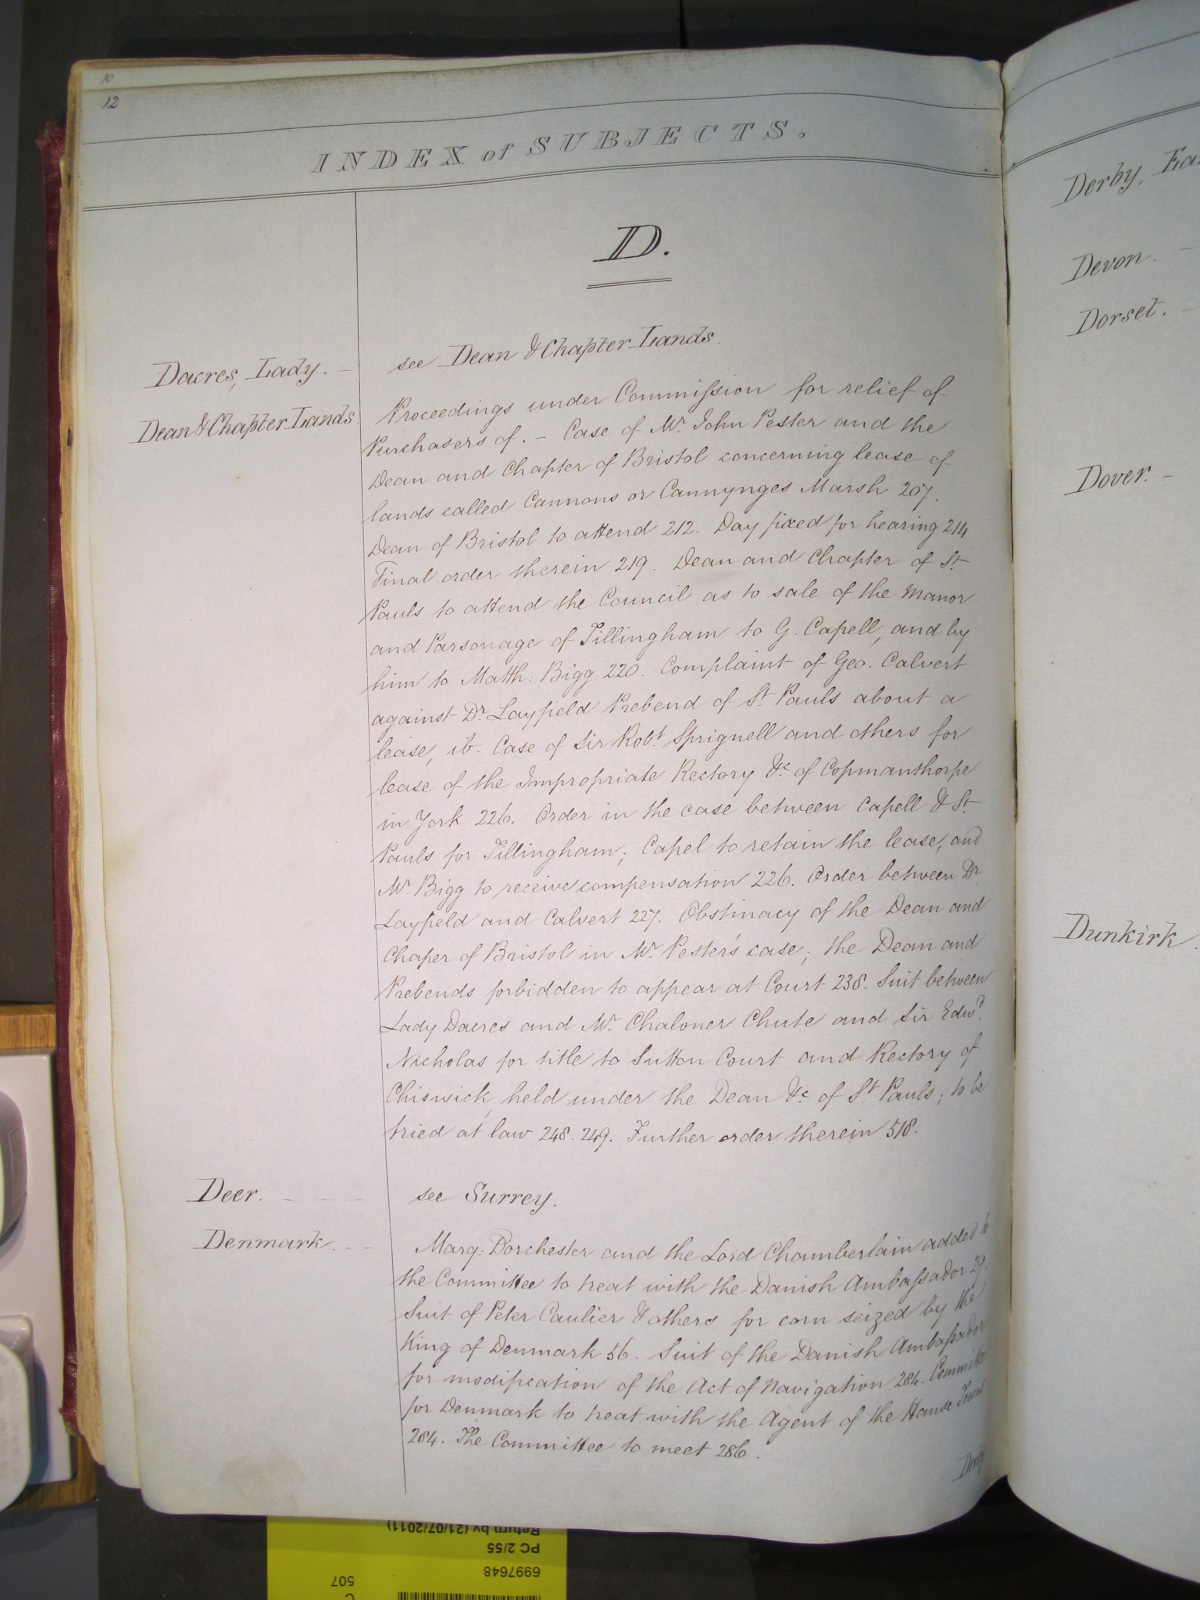 10
12
INDEX of SUBJECTS.
D.
Dacres, Lady. - see Dean & Chapter Lands.
Dean & Chapter Lands Proceedings under Commission for relief of
Purchasers of. - Case of Mr. John Pester and the
Dean and Chapter of Bristol concerning lease of
lands called Cannons or Cannynges Marsh 207.
Dean of Bristol to attend 212. Day fixed for hearing 214
Final order therein 219. Dean and Chapter of St.
Pauls to attend the Council as to sale of the Manor
and Parsonage of Tillingham to G. Capell, and by
him to Matth: Bigg 220. Complaint of Geo. Calvert
against Dr. Layfield Prebend of St. Pauls about a
lease, ib. Case of Sir Robt. Sprignell and others for
lease of the Impropriate Rectory &c of Copmanthorpe
in York 226. Order in the case between Capell & St.
Pauls for Tillingham; Capel to retain the lease, and
Mr. Bigg to receive compensation 226. Order between Dr.
Layfield and Calvert 227. Obstinacy of the Dean and
Chaper of Bristol in Mr. Pester's case; the Dean and
Prebends forbidden to appear at Court 238. Suit between
Lady Dacres and Mr. Chaloner Chute and Sir Edwd.
Nicholas for title to Sutton Court and Rectory of
Chiswick held under the Dean &c of St. Pauls; to be
tried at law 248. 249. Further order therein 518.
Deer. - see Surrey.
Denmark. - Marq: Dorchester and the Lord Chamberlain added to
the Committee to treat with the Danish Ambassador 29.
Suit of Peter Caulier & others for corn seized by the
King of Denmark 56. Suit of the Danish Ambassador
for modification of the Act of Navigation 284. Committee
for Denmark to treat with the Agent of the Hanse Towns
284. The Committee to meet 286.
Derby
Derby, Ea
Devon. -
Dorset. -
Dover. -
Dunkirk.
Return by (21/07/2011)
PC 2/55
6997648
507
C